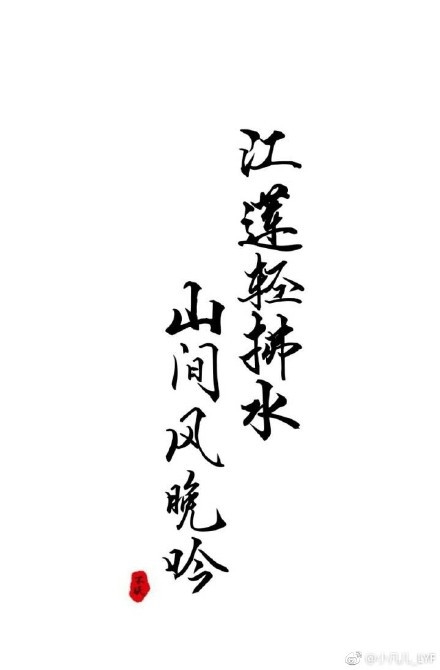 江莲轻拂水
山间风晚吟
@小凡儿_LYF